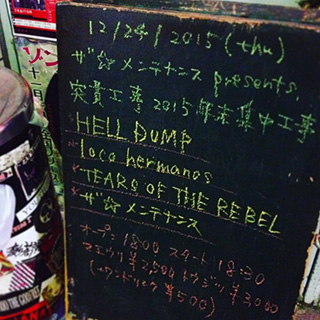 12/24/2015(thu)
ザ☆メンテナンス presents.
実費工事 2015年末集中工事
HELL DUMP
loco hermanos
TEARS OF THE REBEL
ザ☆メンテナンス
オープン 18:00 スタート 18:30
マエウリ ¥2,500 トウジツ ¥3,000
(+ワンドリンク ¥500)